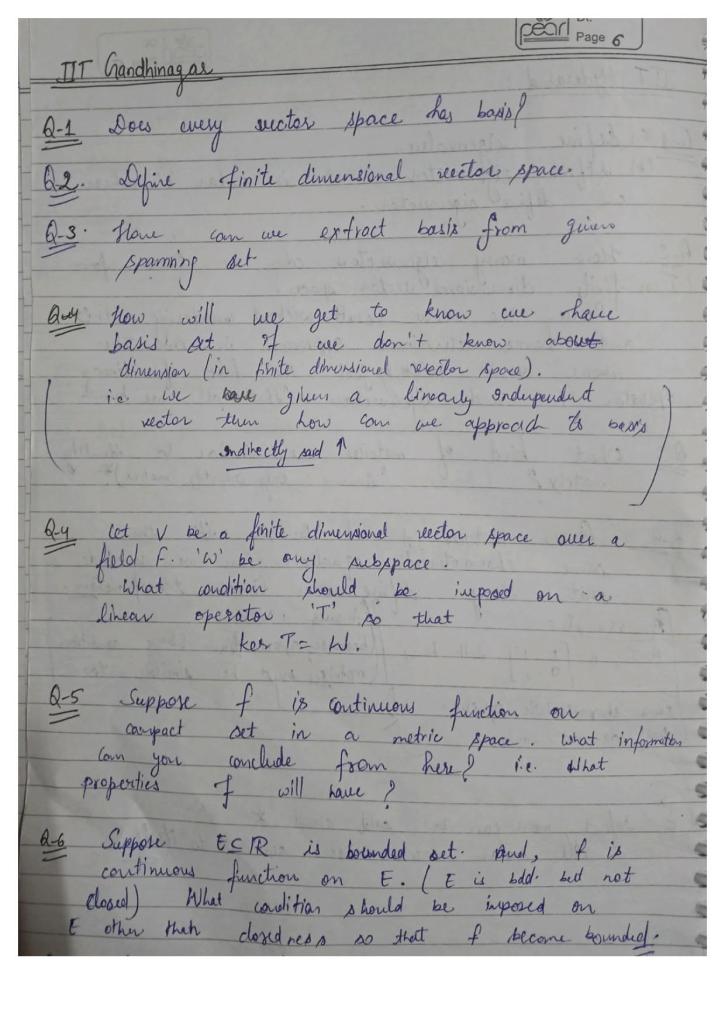 pearl
Page 6
IIT Gandhinagar
Q-1 Does every vector space has basis?
Q.2. Define finite dimensional vector space.
Q-3. How can we extract basis from given
spanning set
Q-4 How will we get to know we have
basis set if we don't know about
dimension (in finite dimensional vector space).
i.e. we have given a linearly independent
vector then how can we approach to basis
indirectly said ↑
Q-4 Let V be a finite dimensional vector space over a
field F. 'W' be any subspace.
What condition should be imposed on a
linear operator 'T' so that
ker T = W.
Q-5 Suppose f is continuous function on
compact set in a metric space. What information
can you conclude from here? i.e. What
properties f will have?
Q-6 Suppose E⊆ℝ is bounded set. And, f is
continuous function on E. (E is bdd. but not
closed) What condition should be imposed on
E other than closedness so that f become bounded.